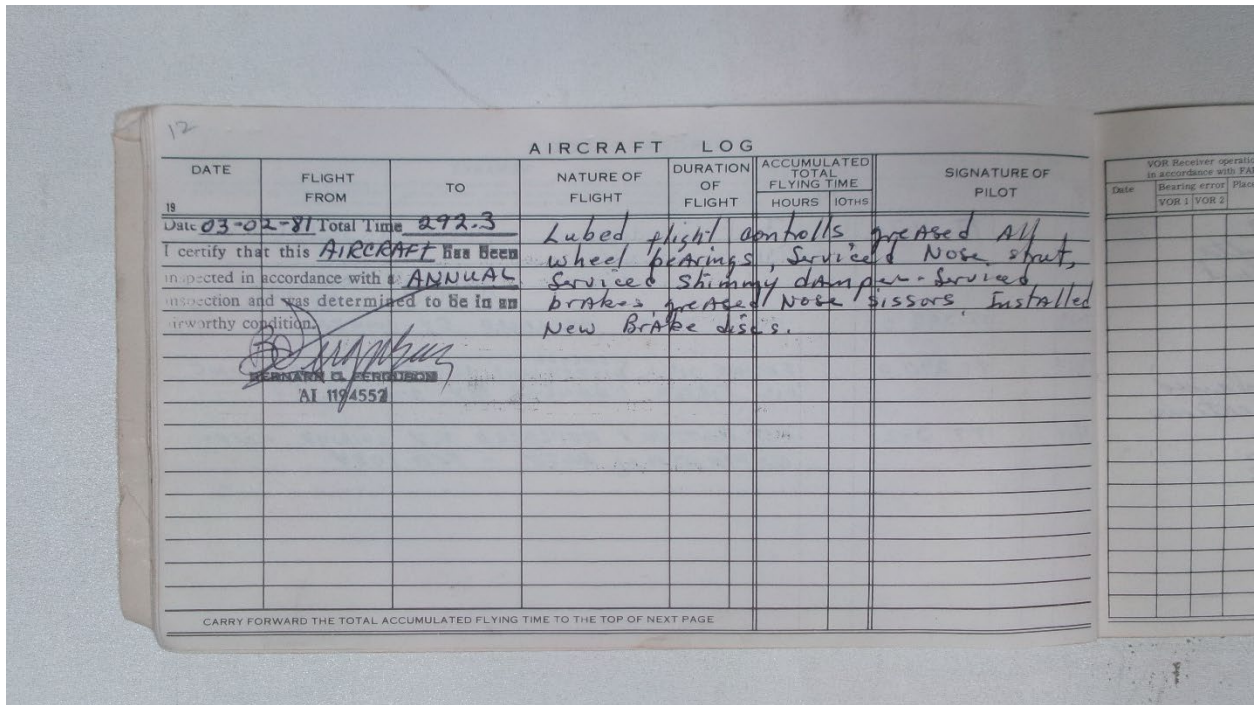 12
AIRCRAFT LOG
DATE
19
FLIGHT
FROM
TO
NATURE OF
FLIGHT
DURATION
OF
FLIGHT
ACCUMULATED
TOTAL
FLYING TIME
HOURS
10THS
SIGNATURE OF
PILOT
Date 03-02-81 Total Time 292.3
I certify that this AIRCRAFT has been
inspected in accordance with a ANNUAL
inspection and was determined to be in an
airworthy condition.
BERNARR G. FERGUSON
AI 1194552
Lubed flight controlls greased All
wheel bearings, Serviced Nose strut,
Serviced Shimmy dAmper-Serviced
brAkes, greAsed Nose Sissors, InstAlled
New BrAke discs.
CARRY FORWARD THE TOTAL ACCUMULATED FLYING TIME TO THE TOP OF NEXT PAGE
VOR Receiver
in accordance with
Date
Bearing error
VOR 1
VOR 2